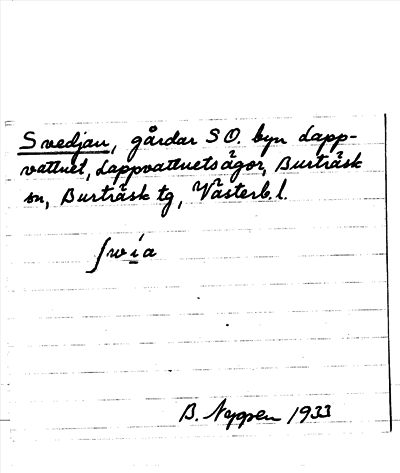 Svedjan, gårdar SO. byn Lapp-
vattnet, Lappvattnets ägor, Burträsk
sn, Burträsk tg, Västerb. l.
ʃwía
B. Nyppen 1933